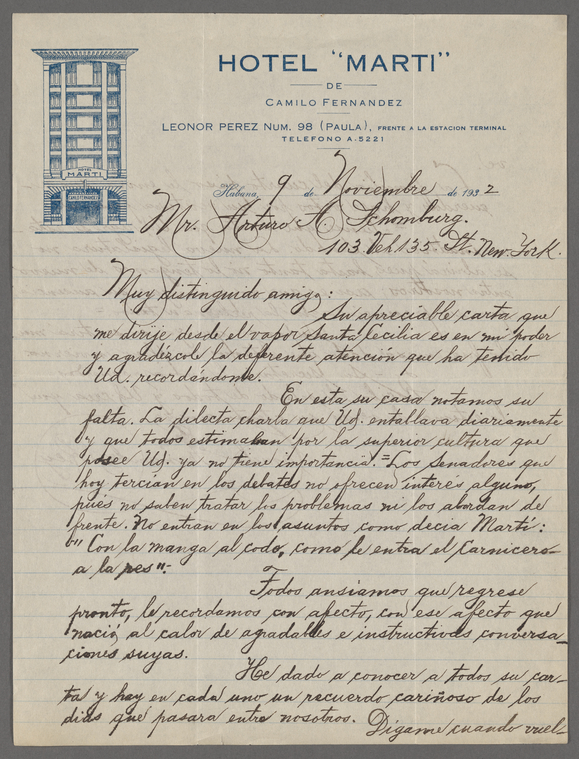 HOTEL "MARTI"
DE
CAMILO FERNANDEZ
LEONOR PEREZ NUM. 98 (PAULA), FRENTE A LA ESTACION TERMINAL
TELEFONO A-5221
HOTEL
MARTI
CAMILO FERNANDEZ
Habana, 9 de Noviembre de 1932
Mr. Arturo A. Schomburg.
103 135. St. New-York.
Muy distinguido amigo:
Su apreciable carta que
me dirije desde el vapor Santa Cecilia es en mi poder
y agradézcole la deferente atención que ha tenido
Ud. recordándome.
En esta su casa notamos su
falta. La dilecta charla que Ud. entallava diariamente
y que todos estimaban por la superior cultura que
posee Ud. ya no tiene importancia. = Los Senadores que
hoy tercian en los debates no ofrecen interés alguno,
pués no saben tratar los problemas ni los abordan de
frente. No entran en los asuntos como decia Martí:
"Con la manga al codo, como le entra el Carnicero
a la res".
Todos ansiamos que regrese
pronto, le recordamos con afecto, con ese afecto que
nació al calor de agradables e instructivas conversa-
ciones suyas.
He dado a conocer a todos su car-
ta y hay en cada uno un recuerdo cariñoso de los
dias que pasara entre nosotros. Dígame cuando vuel-